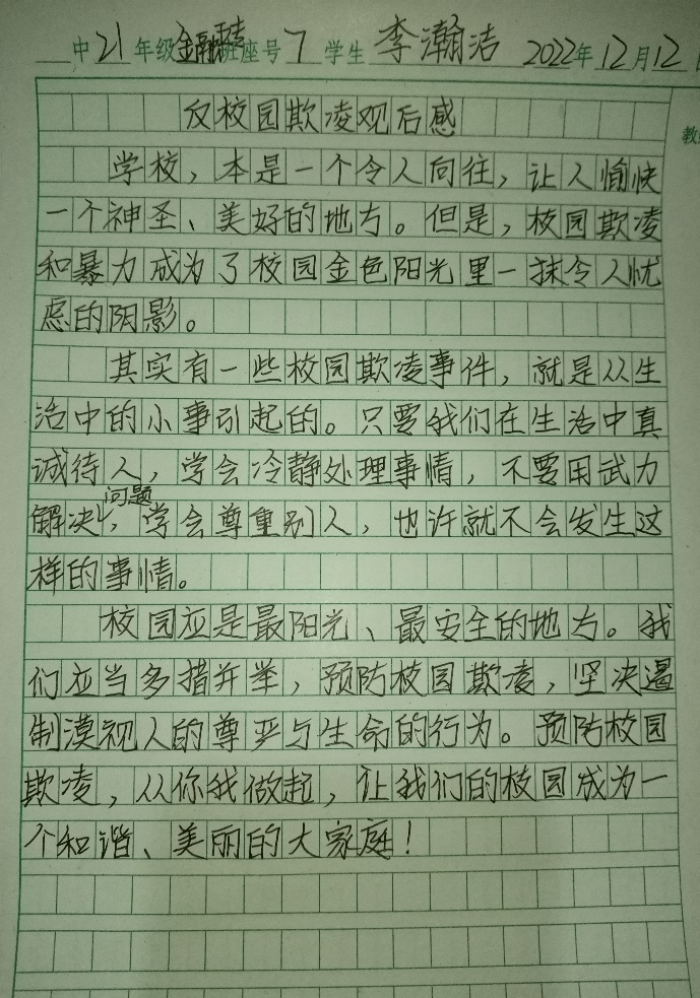 中21年级金融班座号7学生李瀚洁 2022年12月12日
反校园欺凌观后感
学校，本是一个令人向往，让人愉快
一个神圣、美好的地方。但是，校园欺凌
和暴力成为了校园金色阳光里一抹令人忧
虑的阴影。
其实有一些校园欺凌事件，就是从生
活中的小事引起的。只要我们在生活中真
诚待人，学会冷静处理事情，不要用武力
解决问题，学会尊重别人，也许就不会发生这
样的事情。
校园应是最阳光、最安全的地方。我
们应当多措并举，预防校园欺凌，坚决遏
制漠视人的尊严与生命的行为。预防校园
欺凌，从你我做起，让我们的校园成为一
个和谐、美丽的大家庭！